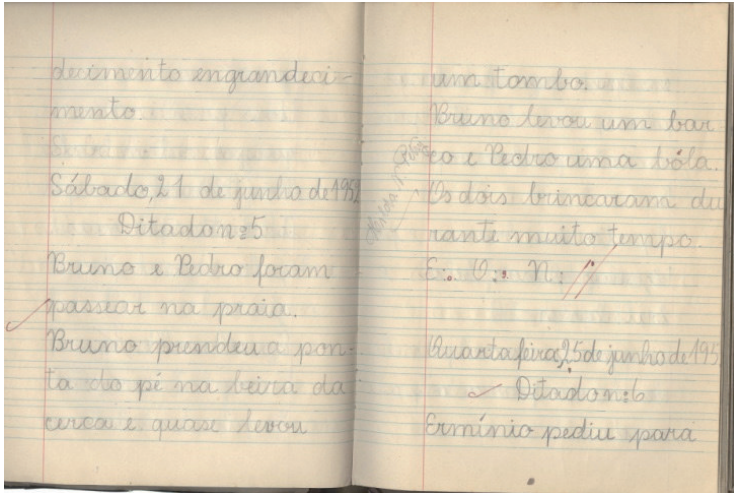 decimento engrandeci-
mento.
Sábado, 21 de junho de 1952
Ditado n: 5
Bruno e Pedro foram
passear na praia.
Bruno prendeu a pon-
ta do pé na beira da
cerca e quase levou
um tombo.
Bruno levou um bar
co e Pedro uma bóla.
Os dois brincaram du
rante muito tempo.
E:. O:. N:
Quarta feira, 25 de junho de 195
Ditado n: 6
Ermínio pediu para